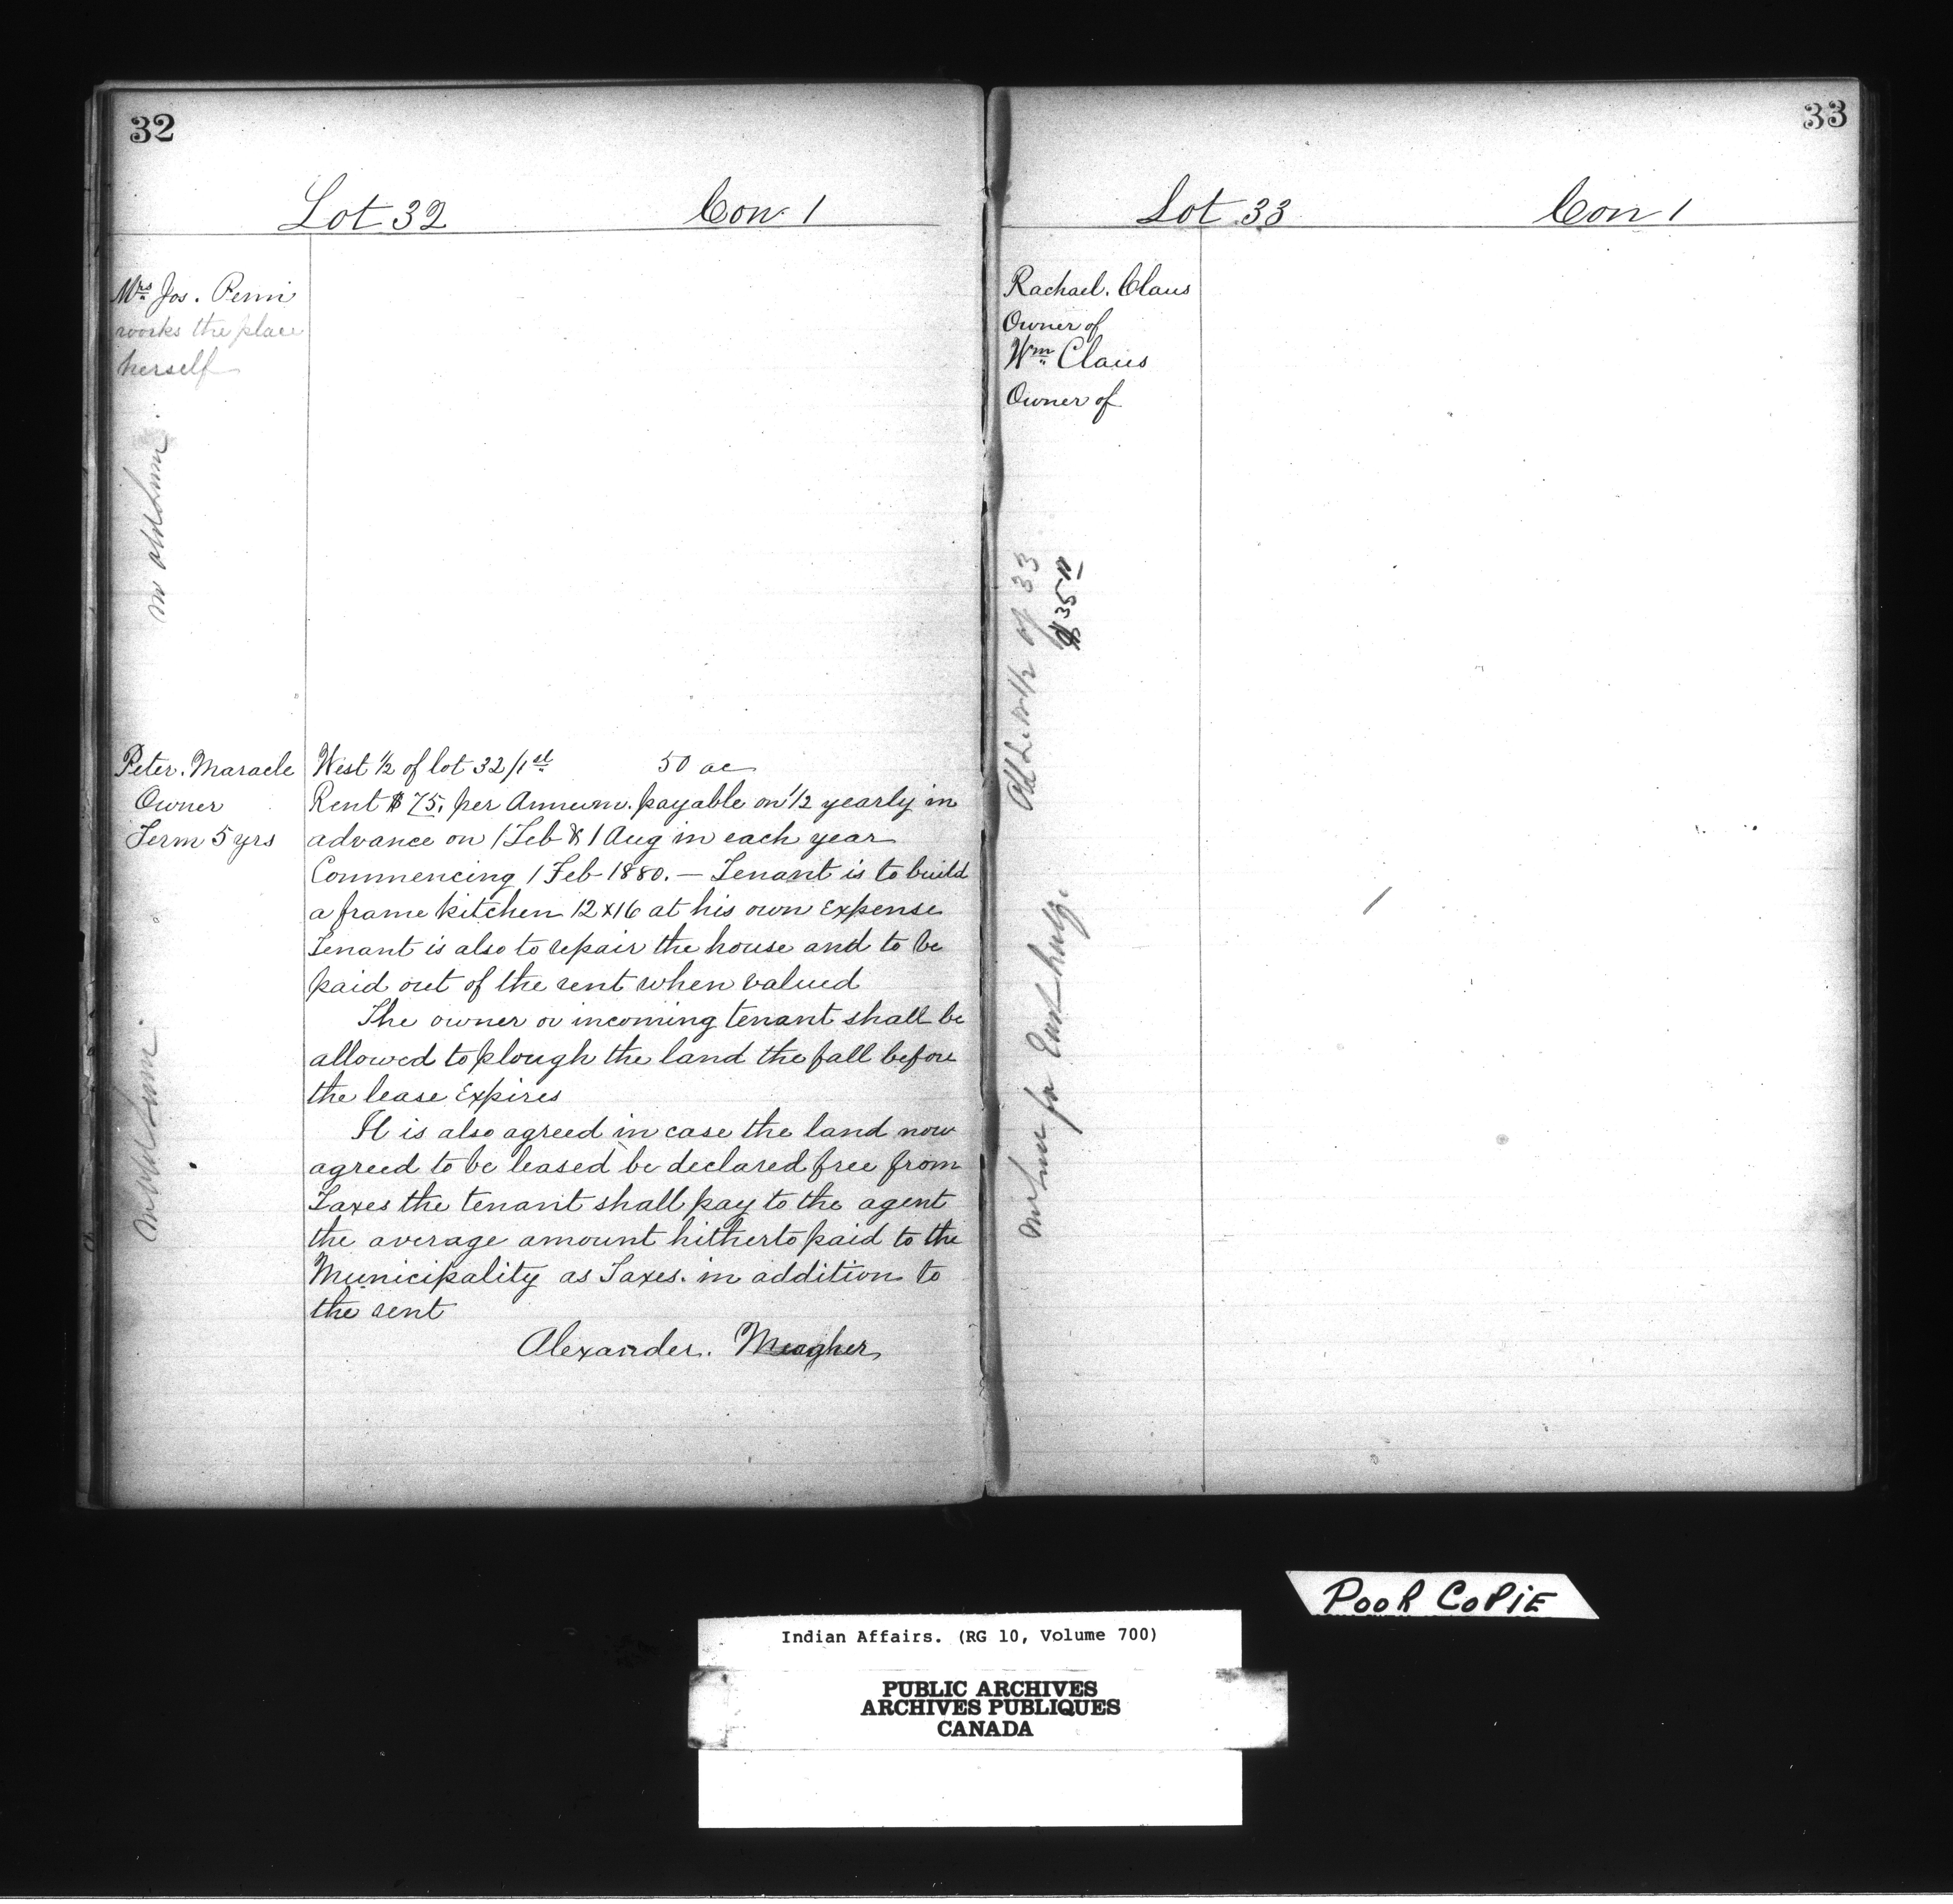 32
Lot 32 Con 1
Mrs Jos. Penn
works the place
herself
Peter. Maracle
Owner
Term 5 yrs
West 1/2 of lot 32/1st 50 ac
Rent $75. per Annum. payable on 1/2 yearly in
advance on 1 Feb & 1 Aug in each year
Commencing 1 Feb 1880. — Tenant is to build
a frame kitchen 12x16 at his own Expense
Tenant is also to repair the house and to be
paid out of the rent when valued
The owner or incoming tenant shall be
allowed to plough the land the fall before
the lease Expires
It is also agreed in case the land now
agreed to be leased be declared free from
Taxes the tenant shall pay to the agent
the average amount hitherto paid to the
Municipality as Taxes. in addition to
the rent
Alexander. Meagher
33
Lot 33 Con 1
Rachael. Claus
Owner of
Wm Claus
Owner of
of 33
$35
for East half
POOR COPIE
Indian Affairs. (RG 10, Volume 700)
PUBLIC ARCHIVES
ARCHIVES PUBLIQUES
CANADA